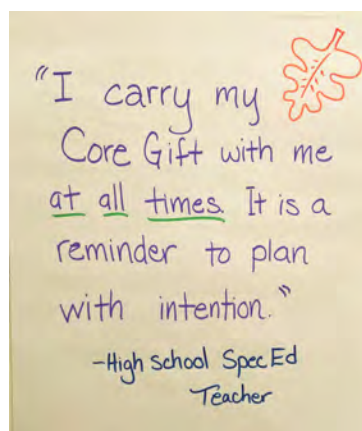 "I carry my
Core Gift with me
at all times. It is a
reminder to plan
with intention."
-High School Spec Ed
Teacher